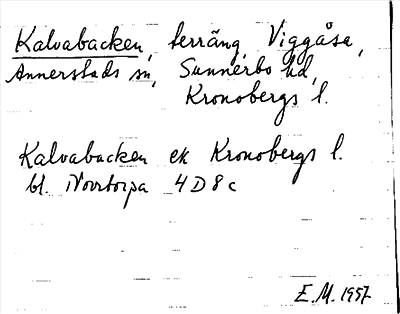 Kalvabacken, terräng, Viggåsa,
Annerstads sn, Sunnerbo hd,
Kronobergs l.
Kalvabacken ek Kronobergs l.
bl. Norrtorpa 4D8c
E.M. 1957